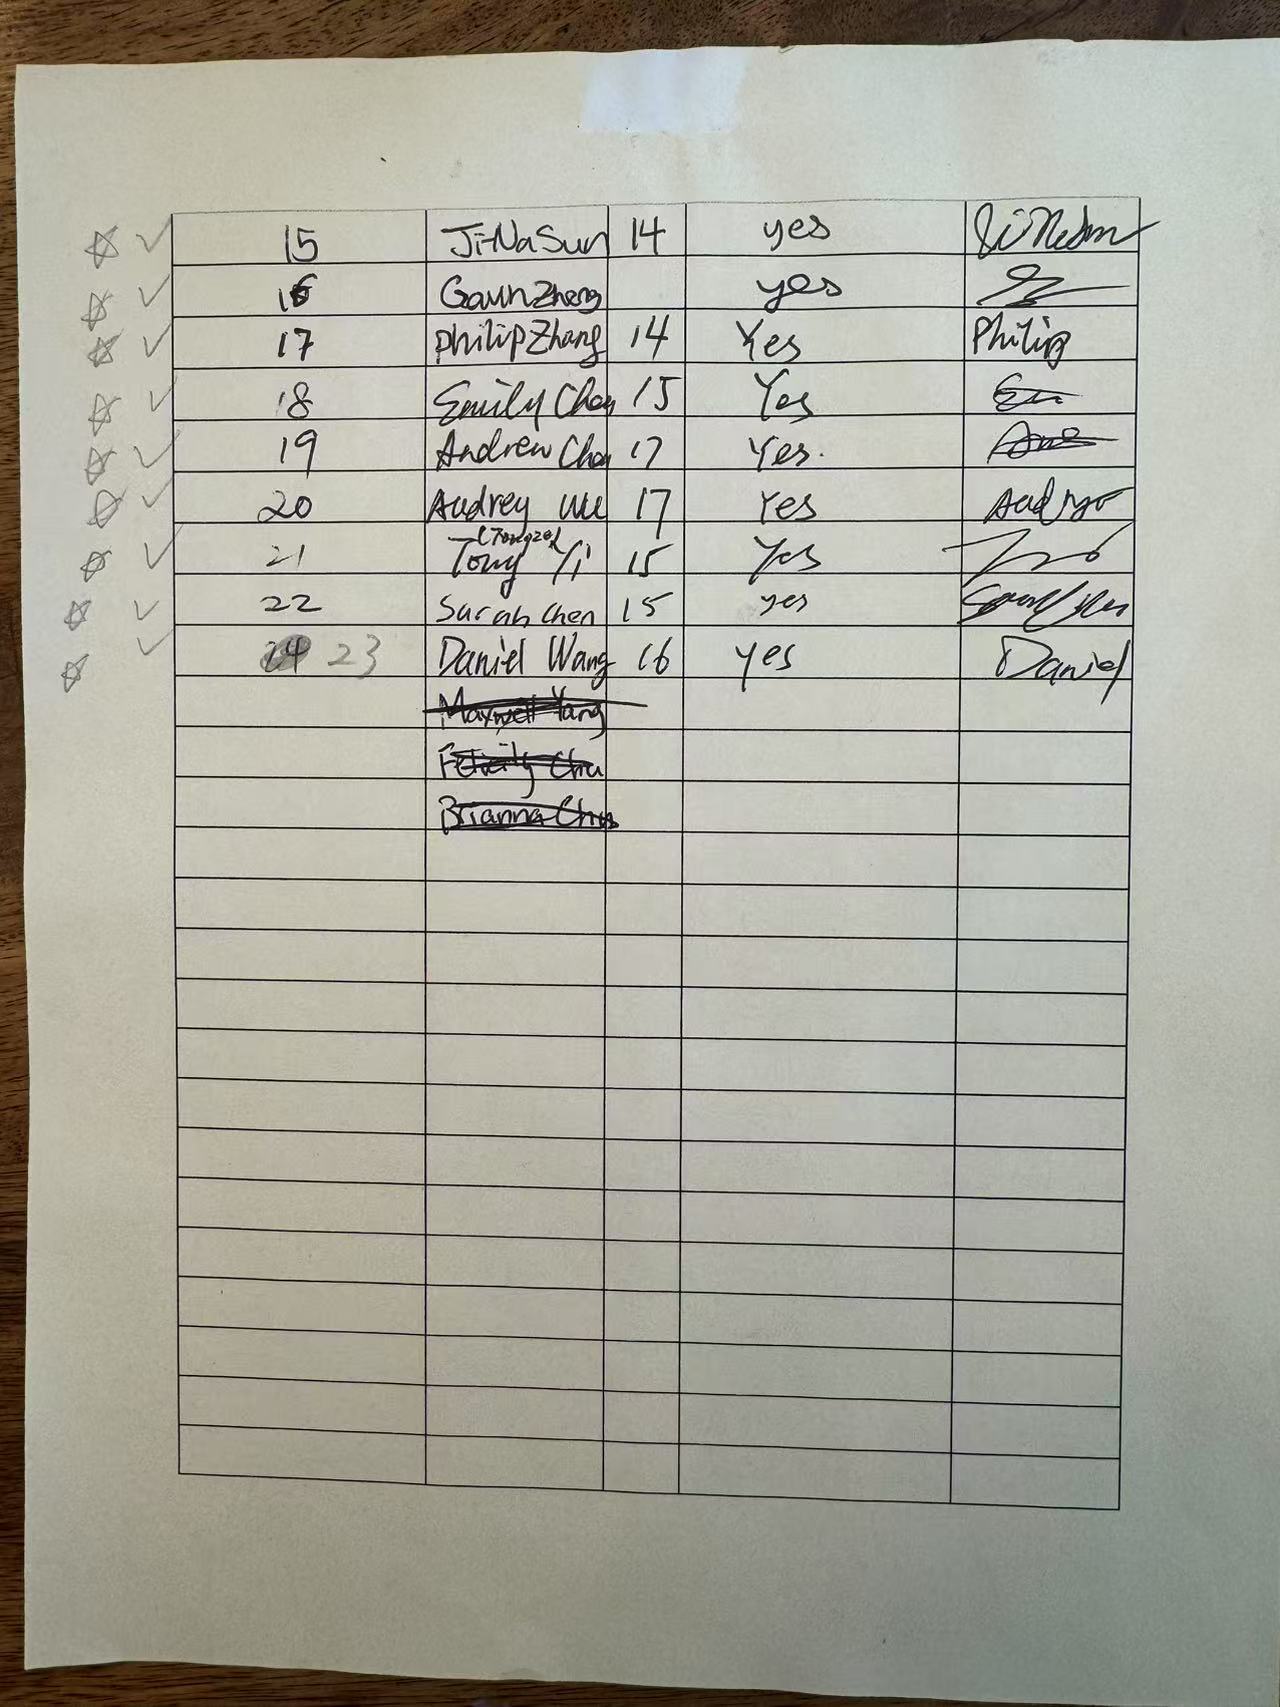 15 Ji-Na Sun 14 yes
16 Gavin Zheng yes
17 Philip Zhang 14 Yes Philip
18 Emily Chen 15 Yes
19 Andrew Chen 17 Yes.
20 Audrey Wu 17 Yes
(Tongze)
21 Tony Yi 15 Yes
22 Sarah Chen 15 yes
23 Daniel Wang 16 yes Daniel
Maxwell Yang
Felicity Chu
Brianna Chu